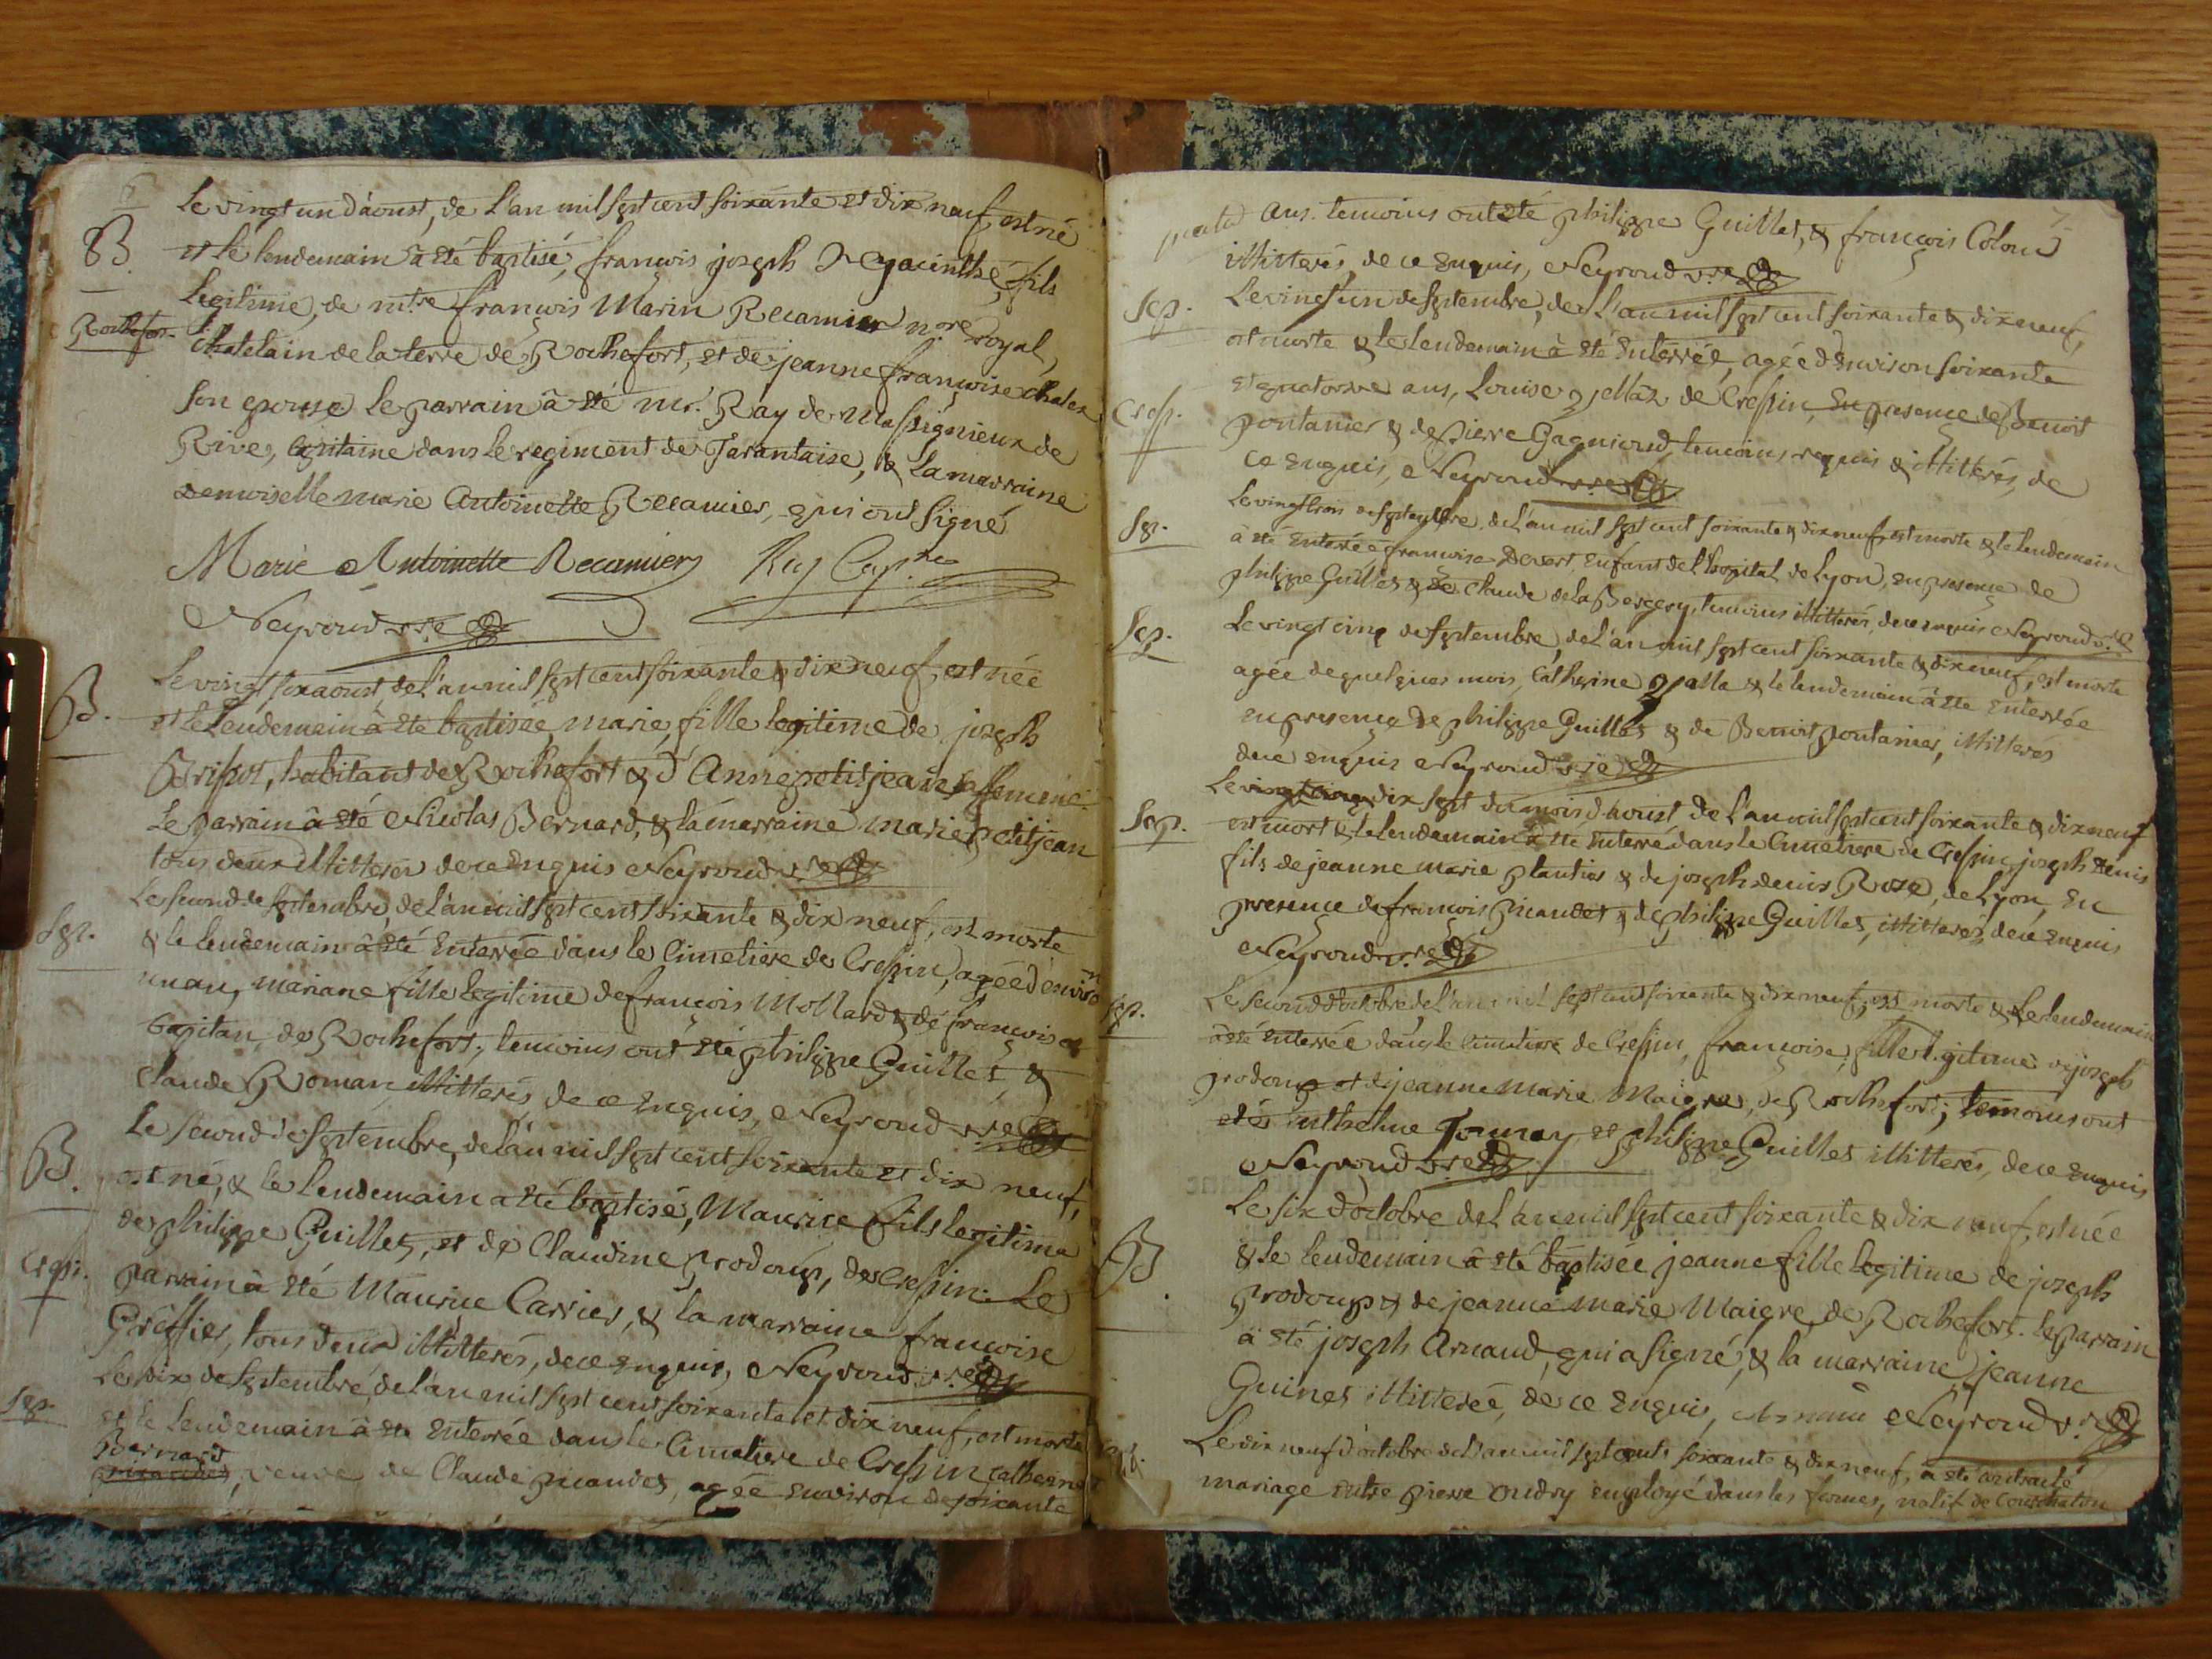 6
Le vingt un d'aoust, de l'an mil sept cent soixante et dix neuf, est né
B.
et le lendemain à été baptisé, françois joseph hyacinthe, fils
legitime, de mtre françois Marin Recamier nore royal,
Rochefort
chatelain de la terre de Rochefort, et de jeanne françoise
son epouse Le parrain à été mr. Ray de Massignieux de
Rive, Capitaine dans le regiment de Tarantaise, & la marraine
demoiselle marie Antoinette Recamier, qui ont signé
Marie Antoinette Recamier Ray Capne
Neyroud vre
Le vingt six aoust, de l'an mil sept cent soixante & dix neuf, est née
B.
et le lendemain à été baptisée, marie, fille legitime de joseph
Brissot, habitant de Rochefort & d'Anne petitjean sa femme.
Le parrain à été Nicolas Bernard, & la marraine marie petitjean
tous deux illitterés de ce enquis Neyroud vre
Le second de septembre, de l'an mil sept cent soixante & dix neuf, est morte
Sep.
& le lendemain à été Enterrée dans le Cimetiere de Crespin, agée d'environ
un an, mariane fille legitime de françois Mollard & de françoise
Capitan, de Rochefort, temoins ont été philippe Guillet, &
Claude Roman illitterés de ce enquis, Neyroud vre
Le second de septembre, de l'an mil sept cent soixante et dix neuf,
B.
est né, & le lendemain a été baptisé, Maurice fils legitime
de philippe Guillet, et de Claudine prodoup, de Crespin. Le
Cresp.
parrain à été Maurice Carrier, & la marraine françoise
Greffier, tous deux illitterés, de ce enquis, Neyroud vre
Le dix de septembre, de l'an mil sept cent soixante et dix neuf, est morte
Sep.
et le lendemain à été Enterrée dans le Cimetiere de Crespin Catherine
Bernard
veuve de Claude picaudet, agée environ de soixante
7
ans. temoins ont été philippe Guillet, & françois Colomb
illitterés, de ce enquis, Neyroud vre
Sep.
Le vingt un de septembre, de l'an mil sept cent soixante & dix neuf,
est morte & le lendemain à été Enterrée, agée d'Environ soixante
et quatorze ans, Louise de Crespin, En presence de Benoit
Cresp.
pontanier & de pierre Gagnioud, temoins requis & illitterés, de
ce enquis, Neyroud vre
Le vingt trois de septembre de l'an mil sept cent soixante & dix neuf, est morte & le lendemain
Sep.
à été Enterrée françoise Devert Enfant de l'hopital de Lyon, en presence de
philippe Guillet & de Claude de la Bergery, temoins illitterés, de ce enquis Neyroud vre
Sep.
Le vingt cinq de septembre, de l'an mil sept cent soixante & dix neuf, est morte
agée de quelques mois, Catherine & le lendemain à été Enterrée
en presence de philippe Guillet & de Benoit pontanier, illitterés
de ce enquis Neyroud vre
Le vingt cinq dix sept du mois d'aoust de l'an mil sept cent soixante & dix neuf
Sep.
est mort & le lendemain à été Enterré dans le Cimetiere de Crespin, joseph Denis
fils de jeanne marie plantier & de joseph denis Rose, de Lyon, En
presence de françois picaudet & de philippe Guillet, illitterés, de ce enquis
Neyroud vre
Le second d'octobre de l'an mil sept cent soixante & dix neuf, est morte & le lendemain
Sep.
à été Enterrée dans le Cimetiere de Crespin, françoise, fille legitime de joseph
prodoup et de jeanne Marie Maigre, de Rochefort; temoins ont
été Anthelme Tournay et philippe Guillet illitterés, de ce enquis
Neyroud vre
Le six d'octobre de l'an mil sept cent soixante & dix neuf, est née
B.
& le lendemain à été baptisée jeanne fille legitime de joseph
prodoup & de jeanne marie Maigre, de Rochefort. Le parrain
à été joseph Arnaud, qui a signé, & la marraine jeanne
Guinet illitterée, de ce enquis, Arnaud Neyroud vre
Le dix neuf d'octobre de l'an mil sept cents soixante & dix neuf, à été contracté
mariage entre pierre oudry employé dans les fermes, natif de